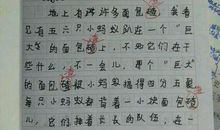 地上有许许多多面包碴，我看
见有五六只小蚂蚁趴在一个“巨
大”的面包碴上，不知它们在干
些什么，不一会儿，那个“巨大”
的面包碴被小蚂蚁搞得四分五裂
每只小蚂蚁都背着一小块面包碴
儿，它们排着长长的队伍，在